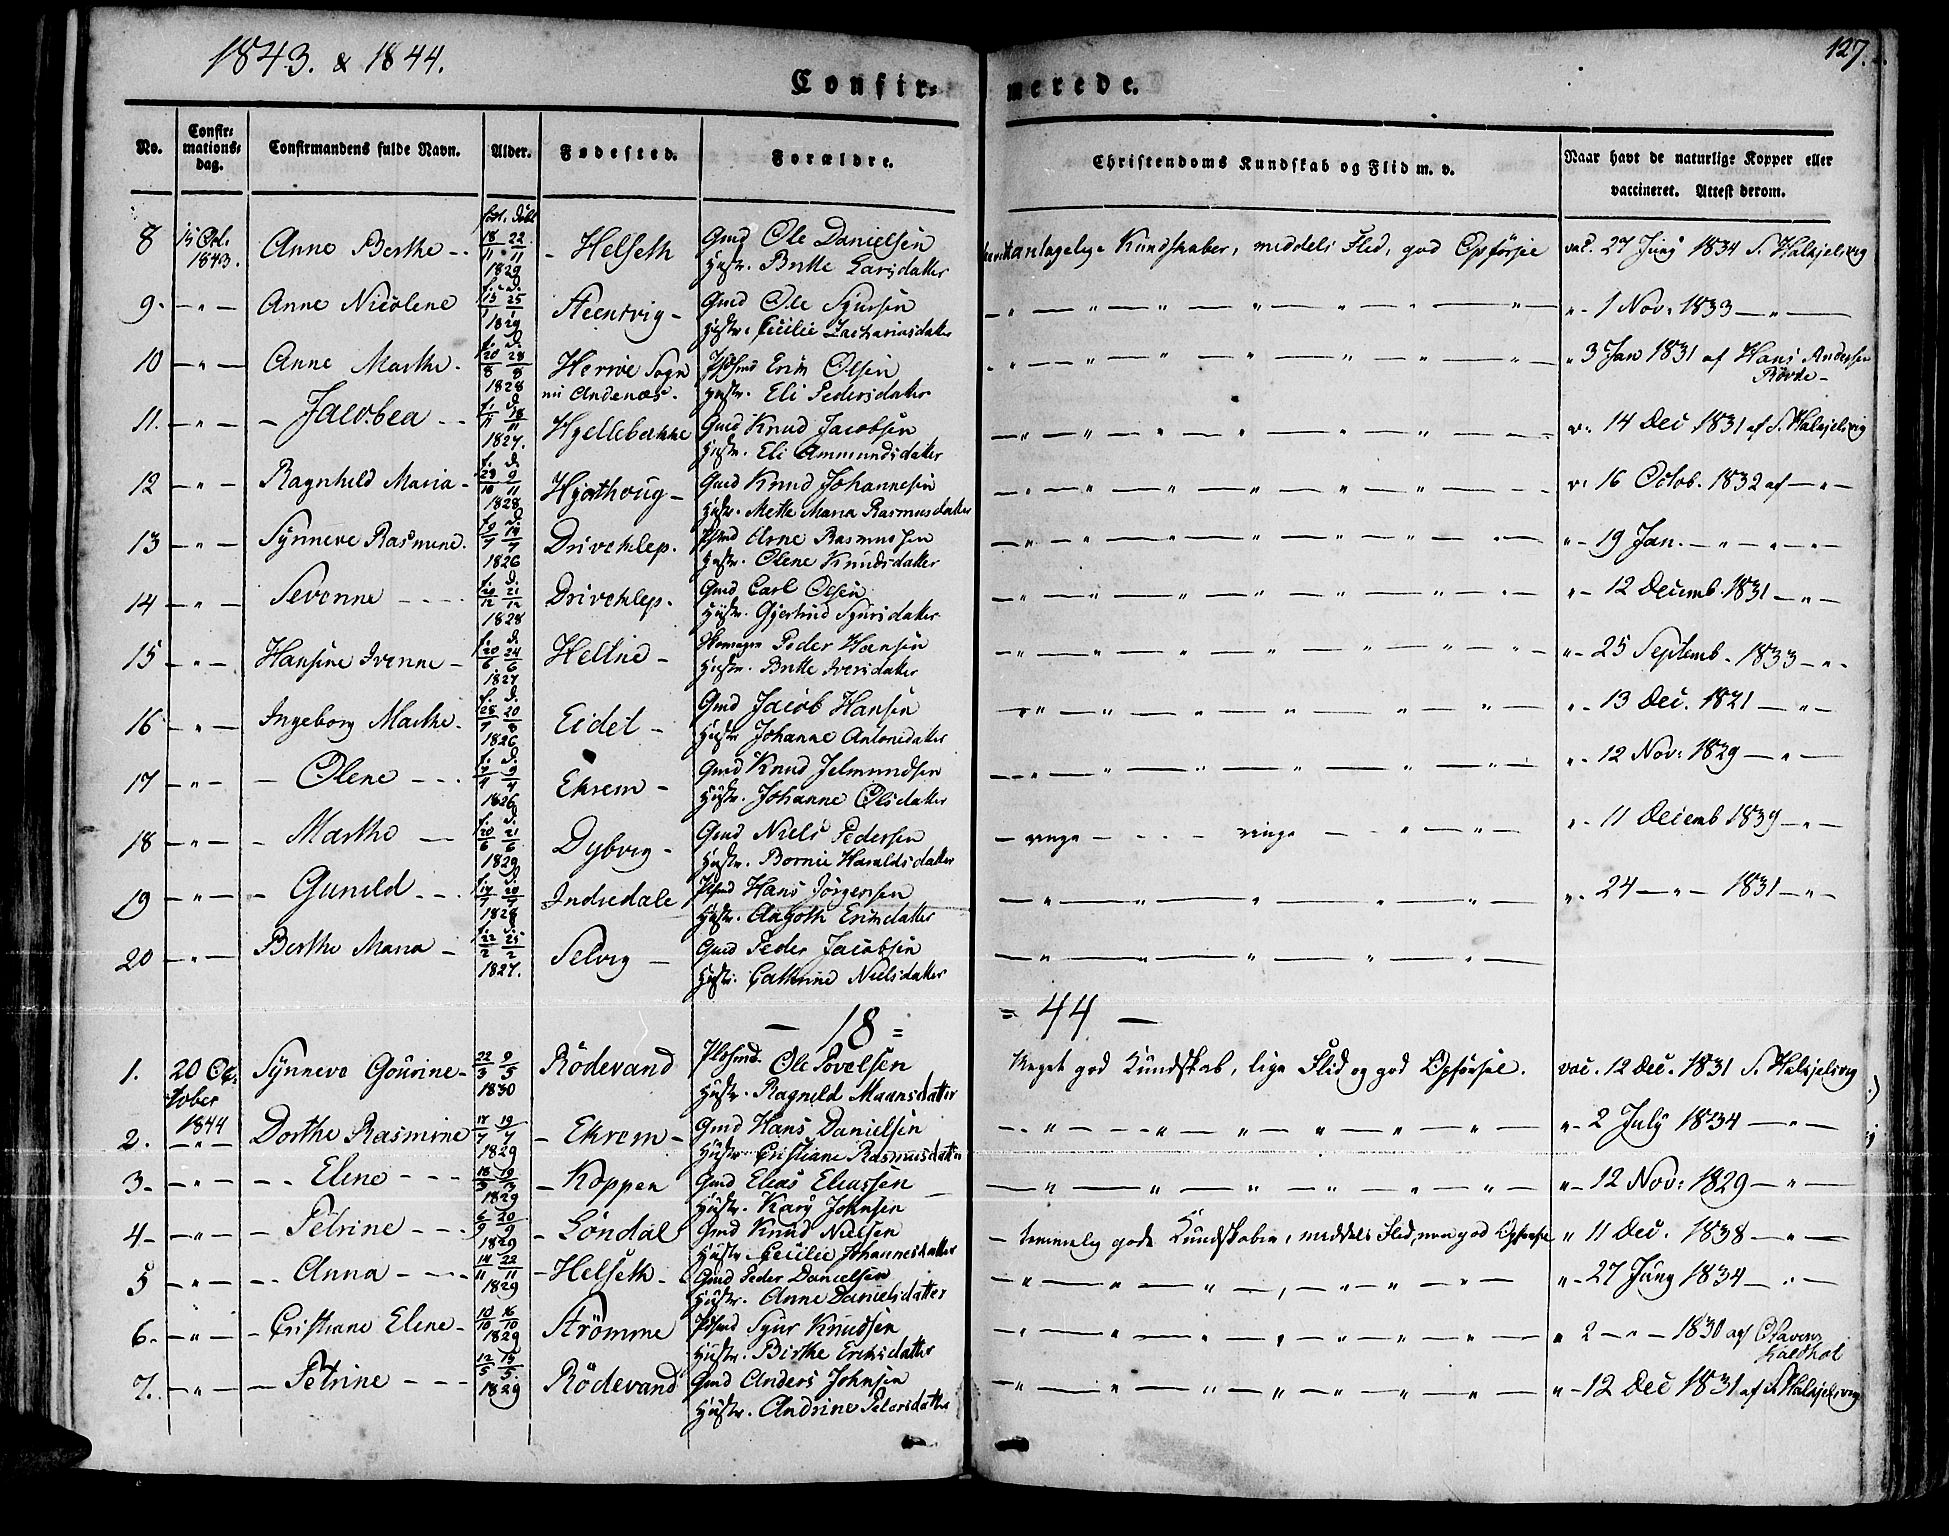 1843. & 1844.
127.
Confir- merede.
No. Confir-mations-dag. Confirmandens fulde Navn. Alder. Fødested. Forældre. Christendoms Kundskab og Flid m. v. Naar havt de naturlige Kopper eller vaccineret. Attest derom.
8 15 Oct. 1843. Anne Berthe - 18/11 22/11 1829 - Helseth Gmd Ole Danielsen
Hustr. Britte Larsdatter
antagelige Kundskaber, middels Flid, god Opførsel vac. 27 Juny 1834 S. Halkjelsvig
9. - " - Anne Nicolene 1829 Steentvig - Gmd Ole Syvrsen
Hustr. Cecilie Zachariasdatter
" - 1 Nov: 1833 - " -
10 - " - Anne Marthe. 20/8 28/8 1828 Herröe Sogn Erik Olsen
Hustr. Eli Pedersdatter
" 3 Jan 1831 af Hans Andersen Rövde -
11. - " - - Jacobea - - 1827. Hjellebakke Gmd Knud Jacobsen
Hustr. Eli Ammundsdatter
v: 14 Dec 1831 af S. Halkjelsvig
12 - " - Ragnhild Maria - 1828 Hjorthoug - Gmd Knud Johannesen
Hustr. Mette Maria Rasmusdatter
v: 16 Octob. 1832 af - " -
13 - " - Synneve Rasmine. 1826 Driveklep. Plsmd Arne Rasmussen
Hustr. Olene Knudsdatter
" - 19 Jan. - " - " - " -
14 - " - Sevenne - - - 20/12 21/12 1828 Driveklep. Gmd Carl Olsen
Hustr. Gjertrud Syvrsdatter
" - 12 Decemb. 1831 - " -
15 - " - Hansine Ivenne - 20/6 24/6 1827 Heltne - Peder Hansen
Hustr. Britte Iversdatter
" - 25 Septemb. 1833 - " -
16 - " - Ingeborg Marthe. 1826 Eidet - Gmd Jacob Hansen
Hustr Johanne Antonsdatter
" - 13 Dec. 1821 - " -
17 - " - - Olene - - - 1826 Ekrem - Gmd Knud Jelmundsen
Hustr. Johanne Olsdatter
" - 12 Nov: 1829 - " -
18 - " - - Marthe - 20/6 21/6 1829 Dybvig - Gmd Niels Pedersen
Hustr. Bornie Haraldsdatter
- ringe - - - - ringe - - " - " - " - 11 Decemb 1839 - " -
19 - " - - Gunild - - - 1828 Indredale Plsmd Hans Jörgensen
Hustr. Eriksdatter
" - 24 - " - 1831 - " -
20 - " - Berthe Maria - 22/2 25/2 1827. Selvig - Gmd Peder Jacobsen
Hustr. Cathrine Nielsdatter
- 18 = = 44 -
1. 20 October 1844 Synneve Gourine - 22/3 9/5 1830 Rödevand Plsmd. Ole Povelsen
Hustr. Ragnild Maansdatter
Meget god Kundskab, lige Flid og god Opførsel. vac. 12 Dec. 1831 S. Halkjelsvig
2. - " - Dorthe Rasmine 17/7 19/7 1829 - Ekrem - Gmd Hans Danielsen
Hustr. Cristiane Rasmusdatter
" - 2 July 1834 - " -
3 - - " - - - Elene - - - 1829 - Koppen Gmd Elias Eliassen
Hustr. Kary Johnsen
" - 12 Nov: 1829 - " -
4 - - " - - Petrine - - - 6/9 20/9 1829 - Löndal Gmd Knud Nielsen
Hustr. Cecilie Johannesdatter
- temmelig gode Kundskaber, middels Flid, men god Opførsel " 11 Dec. 1838 - " -
5 - " - - - Anna - - - - 14/11 22/11 1829 - Helseth - Gmd Peder Danielsen
Hustr. Anne Danielsdatter
" - 27 Juny 1834 - " -
6 - - " - - Cristiane Elene - 10/10 16/10 1829 Strömme Plsmd Syvr Knudsen
Hustr. Birthe Eriksdatter
" 2 - " - 1830 af Olavens Kaldhol
7. - " - - Petrine - - - 12/5 15/5 1829 Rödevand Gmd Anders Johnsen
Hustr. Andrine Petersdatter
" - 12 Dec 1831 af S. Halkjelsvig